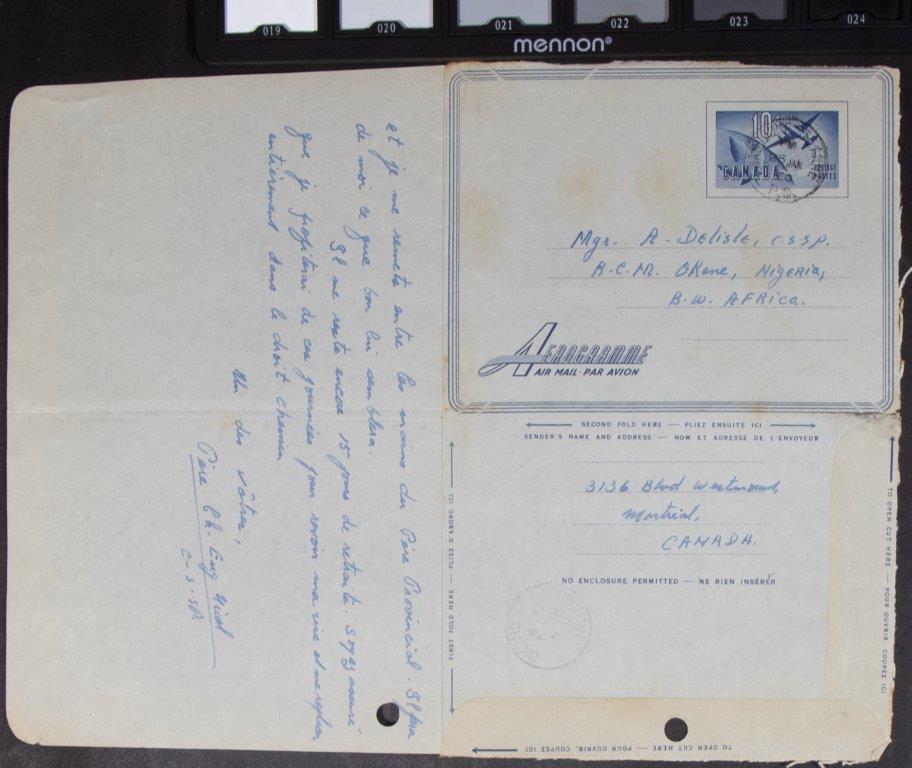 019
020
021
022
023
024
mennon®
et je me remets entre les mains du Père Provincial. Il fera
de moi ce que bon lui semblera.
Il me reste encore 15 jours de retraite. Soyez assuré
que je profiterai de ces journées pour revoir ma vie et me replacer
entièrement dans le droit chemin.
Un des vôtres,
Père Ch. Eug.
C.S.SP.
10¢
CANADA
POSTAGE
POSTES
JAN
P.Q.
Mgr. A. Delisle, C.S.SP.
R.C.M. Okene, Nigeria,
B.W. AFRICA.
AEROGRAMME
AIR MAIL · PAR AVION
SECOND FOLD HERE — PLIEZ ENSUITE ICI
SENDER'S NAME AND ADDRESS — NOM ET ADRESSE DE L'ENVOYEUR
3136 Blvd Westmount,
Montréal,
CANADA.
NO ENCLOSURE PERMITTED — NE RIEN INSÉRER
FIRST FOLD HERE — PLIEZ D'ABORD ICI
TO OPEN CUT HERE — POUR OUVRIR, COUPEZ ICI
TO OPEN CUT HERE — POUR OUVRIR, COUPEZ ICI